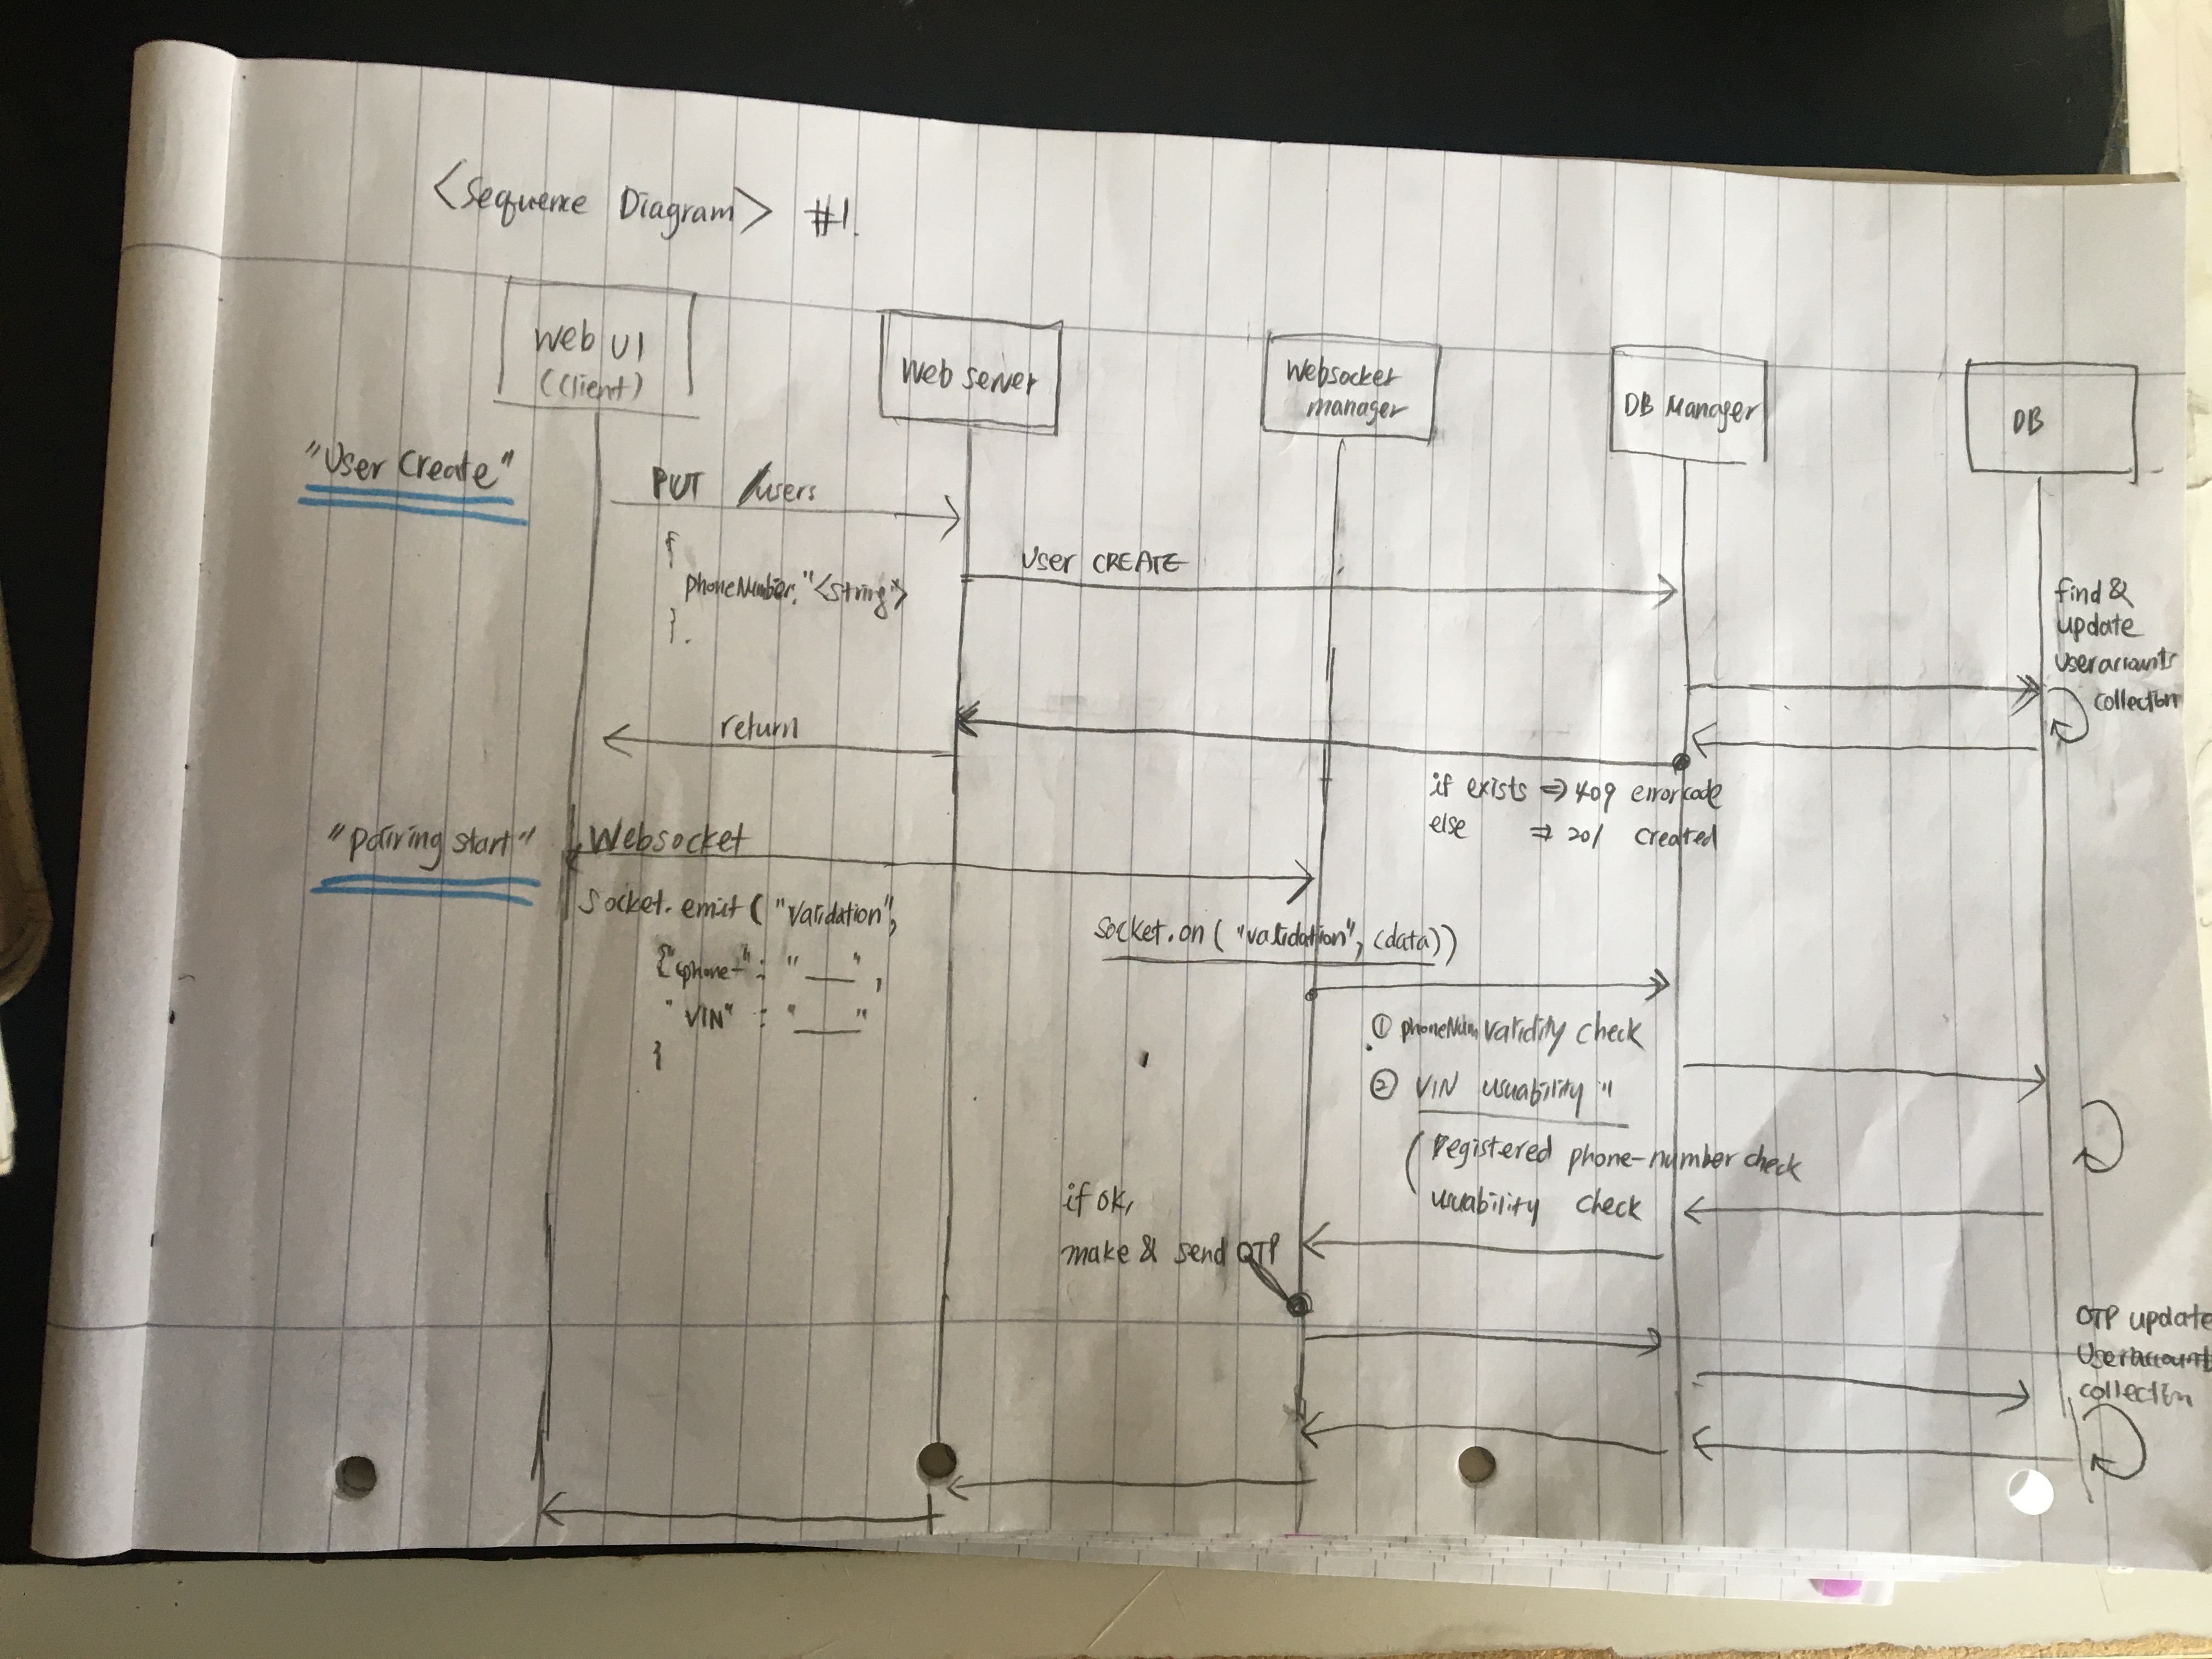 <Sequence Diagram> #1.
Web UI
(Client)
Web server
Websocket
manager
DB Manager
DB
"User Create"
PUT /users
{
phoneNumber: "<String>"
}.
User CREATE
find &
update
useraccounts
collection
return
if exists => 409 error code
else => 201 created
"pairing start"
Websocket
Socket.emit( "Validation",
{"phone-" : "___",
"VIN" : "___"
}
socket.on( "validation", (data))
① phoneNum validity check
② VIN usuability "
( Registered phone-number check
usuability check
if ok,
make & send OTP
OTP update
Useraccounts
collection